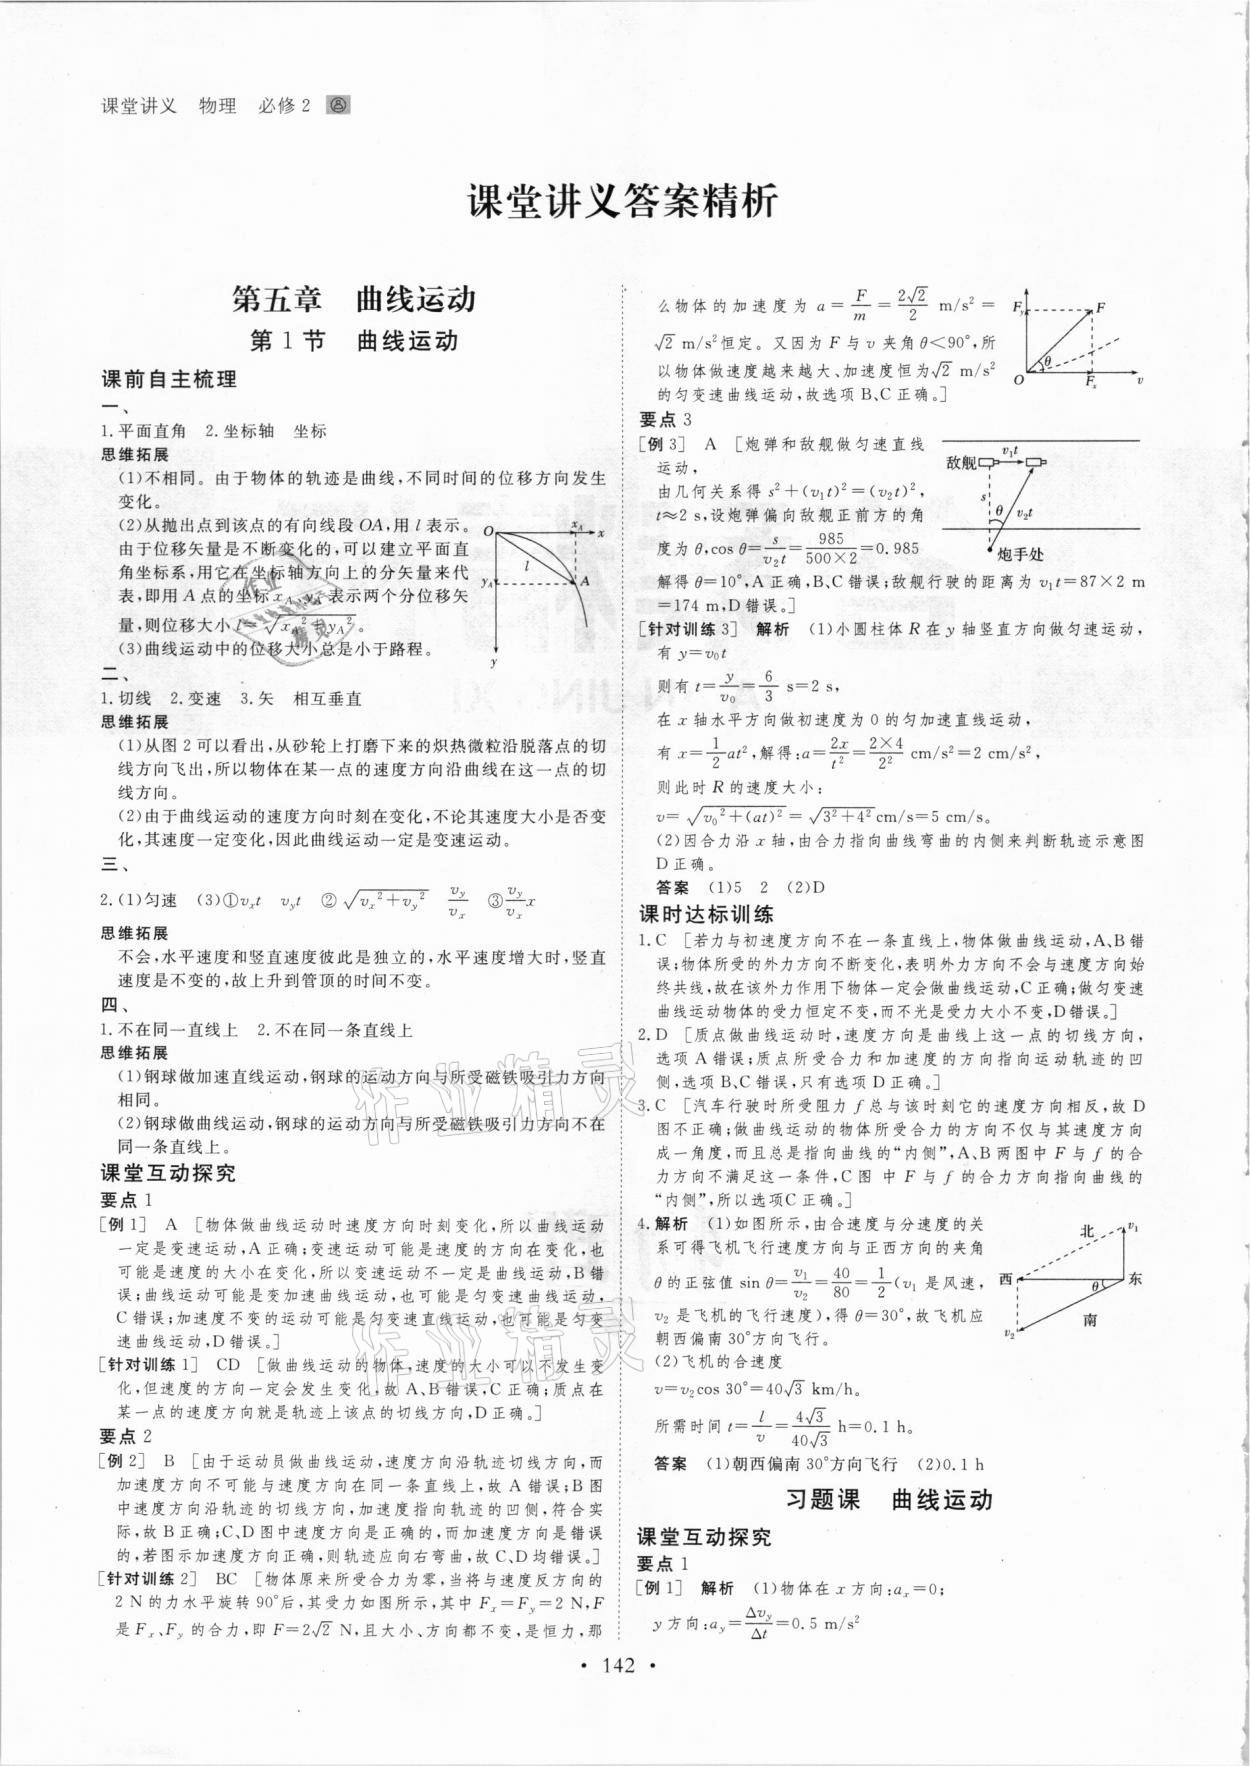 课堂讲义 物理 必修2
课堂讲义答案精析
第五章 曲线运动
第1节 曲线运动
课前自主梳理
一、
1.平面直角 2.坐标轴 坐标
思维拓展
(1)不相同。由于物体的轨迹是曲线,不同时间的位移方向发生
变化。
(2)从抛出点到该点的有向线段OA,用l表示。
由于位移矢量是不断变化的,可以建立平面直
角坐标系,用它在坐标轴方向上的分矢量来代
表,即用A点的坐标x_A、y_A表示两个分位移矢
量,则位移大小l=√(x_A²+y_A²)。
(3)曲线运动中的位移大小总是小于路程。
O x_A x
l
y_A A
y
二、
1.切线 2.变速 3.矢 相互垂直
思维拓展
(1)从图2可以看出,从砂轮上打磨下来的炽热微粒沿脱落点的切
线方向飞出,所以物体在某一点的速度方向沿曲线在这一点的切
线方向。
(2)由于曲线运动的速度方向时刻在变化,不论其速度大小是否变
化,其速度一定变化,因此曲线运动一定是变速运动。
三、
2.(1)匀速 (3)①v_xt v_yt ②√(v_x²+v_y²) v_y/v_x ③v_y/v_x x
思维拓展
不会,水平速度和竖直速度彼此是独立的,水平速度增大时,竖直
速度是不变的,故上升到管顶的时间不变。
四、
1.不在同一直线上 2.不在同一条直线上
思维拓展
(1)钢球做加速直线运动,钢球的运动方向与所受磁铁吸引力方向
相同。
(2)钢球做曲线运动,钢球的运动方向与所受磁铁吸引力方向不在
同一条直线上。
课堂互动探究
要点1
[例1] A [物体做曲线运动时速度方向时刻变化,所以曲线运动
一定是变速运动,A正确;变速运动可能是速度的方向在变化,也
可能是速度的大小在变化,所以变速运动不一定是曲线运动,B错
误;曲线运动可能是变加速曲线运动,也可能是匀变速曲线运动,
C错误;加速度不变的运动可能是匀变速直线运动,也可能是匀变
速曲线运动,D错误。]
[针对训练1] CD [做曲线运动的物体,速度的大小可以不发生变
化,但速度的方向一定会发生变化,故A、B错误,C正确;质点在
某一点的速度方向就是轨迹上该点的切线方向,D正确。]
要点2
[例2] B [由于运动员做曲线运动,速度方向沿轨迹切线方向,而
加速度方向不可能与速度方向在同一条直线上,故A错误;B图
中速度方向沿轨迹的切线方向,加速度指向轨迹的凹侧,符合实
际,故B正确;C、D图中速度方向是正确的,而加速度方向是错误
的,若图示加速度方向正确,则轨迹应向右弯曲,故C、D均错误。]
[针对训练2] BC [物体原来所受合力为零,当将与速度反方向的
2 N的力水平旋转90°后,其受力如图所示,其中F_x=F_y=2 N,F
是F_x、F_y的合力,即F=2√2 N,且大小、方向都不变,是恒力,那
么物体的加速度为a=F/m=2√2/2 m/s²=
√2 m/s²恒定。又因为F与v夹角θ<90°,所
以物体做速度越来越大、加速度恒为√2 m/s²
的匀变速曲线运动,故选项B、C正确。]
F_y F
θ
O F_x v
要点3
[例3] A [炮弹和敌舰做匀速直线
运动,
由几何关系得s²+(v₁t)²=(v₂t)²,
t≈2 s,设炮弹偏向敌舰正前方的角
度为θ,cos θ=s/v₂t=985/500×2=0.985
敌舰 v₁t
s
θ v₂t
炮手处
解得θ=10°,A正确,B、C错误;敌舰行驶的距离为v₁t=87×2 m
=174 m,D错误。]
[针对训练3] 解析 (1)小圆柱体R在y轴竖直方向做匀速运动,
有y=v₀t
则有t=y/v₀=6/3 s=2 s,
在x轴水平方向做初速度为0的匀加速直线运动,
有x=1/2 at²,解得:a=2x/t²=2×4/2² cm/s²=2 cm/s²,
则此时R的速度大小:
v=√(v₀²+(at)²)=√(3²+4²) cm/s=5 cm/s。
(2)因合力沿x轴,由合力指向曲线弯曲的内侧来判断轨迹示意图
D正确。
答案 (1)5 2 (2)D
课时达标训练
1.C [若力与初速度方向不在一条直线上,物体做曲线运动,A、B错
误;物体所受的外力方向不断变化,表明外力方向不会与速度方向始
终共线,故在该外力作用下物体一定会做曲线运动,C正确;做匀变速
曲线运动物体的受力恒定不变,而不光是受力大小不变,D错误。]
2.D [质点做曲线运动时,速度方向是曲线上这一点的切线方向,
选项A错误;质点所受合力和加速度的方向指向运动轨迹的凹
侧,选项B、C错误,只有选项D正确。]
3.C [汽车行驶时所受阻力f总与该时刻它的速度方向相反,故D
图不正确;做曲线运动的物体所受合力的方向不仅与其速度方向
成一角度,而且总是指向曲线的“内侧”,A、B两图中F与f的合
力方向不满足这一条件,C图 中F与f的合力方向指向曲线的
“内侧”,所以选项C正确。]
4.解析 (1)如图所示,由合速度与分速度的关
系可得飞机飞行速度方向与正西方向的夹角
θ的正弦值sin θ=v₁/v₂=40/80=1/2(v₁是风速,
v₂是飞机的飞行速度),得θ=30°,故飞机应
朝西偏南30°方向飞行。
(2)飞机的合速度
v=v₂cos 30°=40√3 km/h。
所需时间t=l/v=4√3/40√3 h=0.1 h。
北 v₁
西 θ 东
v₂ 南
答案 (1)朝西偏南30°方向飞行 (2)0.1 h
习题课 曲线运动
课堂互动探究
要点1
[例1] 解析 (1)物体在x方向:a_x=0;
y方向:a_y=Δv_y/Δt=0.5 m/s²
• 142 •
作业精灵
作业精灵
作业精灵